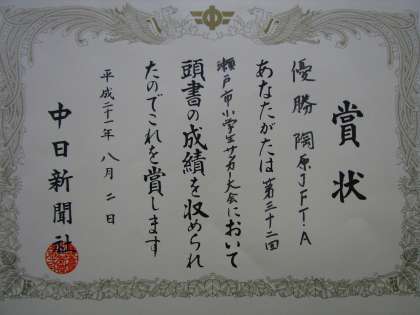 賞状
優勝 陶原JFT・A
あなたがたは第三十二回
瀬戸市小学生サッカー大会において
頭書の成績を収められ
たのでこれを賞します
平成二十一年 八月 二日
中日新聞社